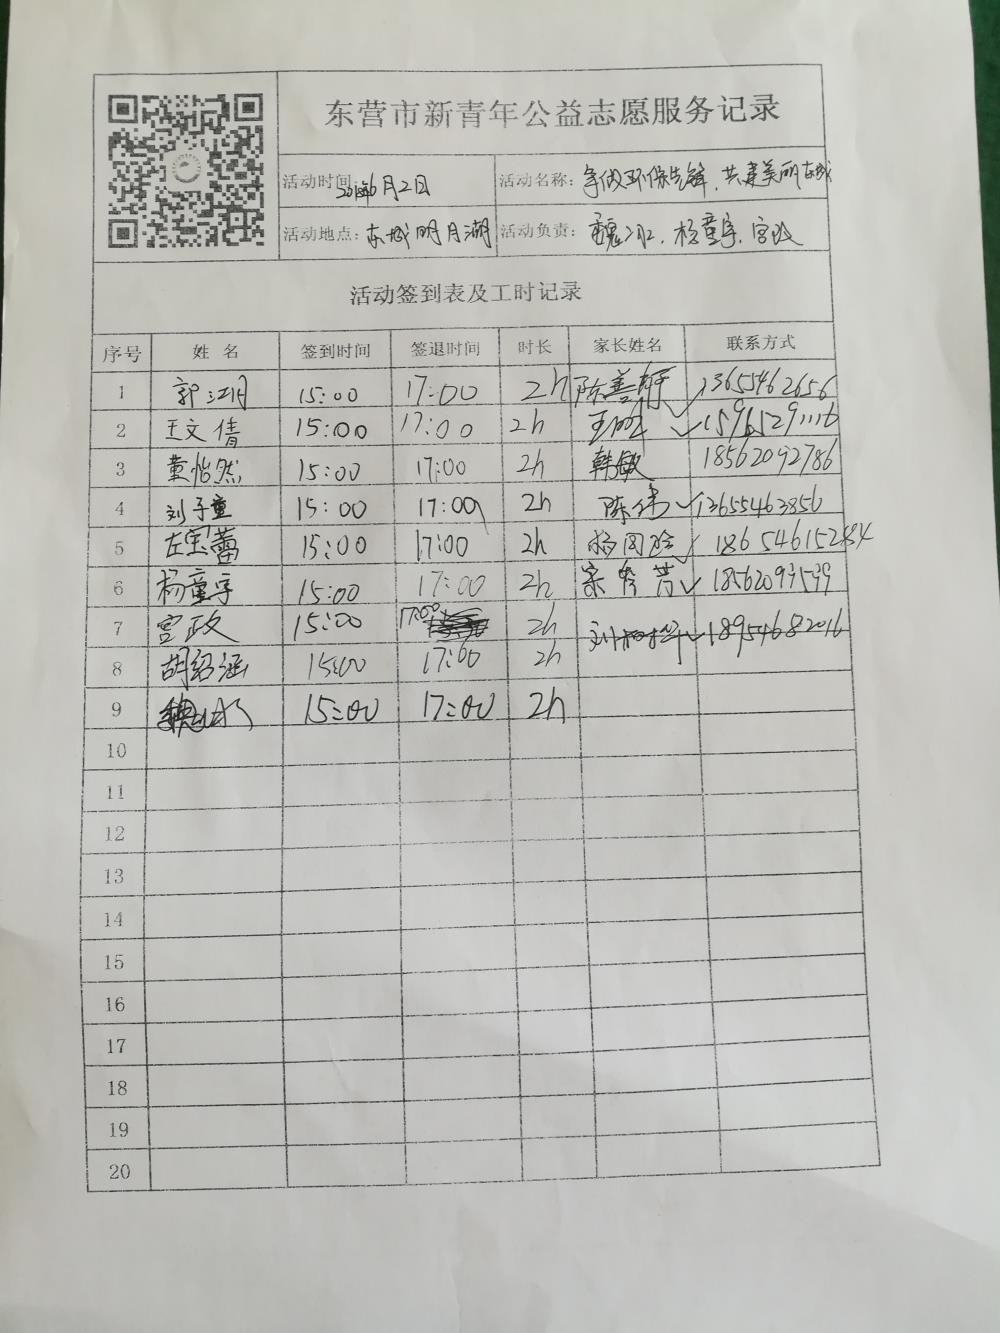 东营市新青年公益志愿服务记录
活动时间: 6月2日 活动名称: 争做环保先锋,共建美丽东城
活动地点: 东城明月湖 活动负责: 魏冰,杨童宇,宫政
活动签到表及工时记录
序号 姓名 签到时间 签退时间 时长 家长姓名 联系方式
1 郭江玥 15:00 17:00 2h 陈善 13655462656
2 王文倩 15:00 17:00 2h 王 15965291116
3 董怡然 15:00 17:00 2h 韩敏 18562092786
4 刘子童 15:00 17:00 2h 陈伟 ✓ 13655463856
5 左宝蕾 15:00 17:00 2h 杨 ✓
6 杨童宇 15:00 17:00 2h 宋秀芳 ✓ 18562099599
7 宫政 15:00 17:00 2h 刘 ✓ 18954682016
8 胡绍涵 15:00 17:00 2h
9 魏冰 15:00 17:00 2h
10
11
12
13
14
15
16
17
18
19
20